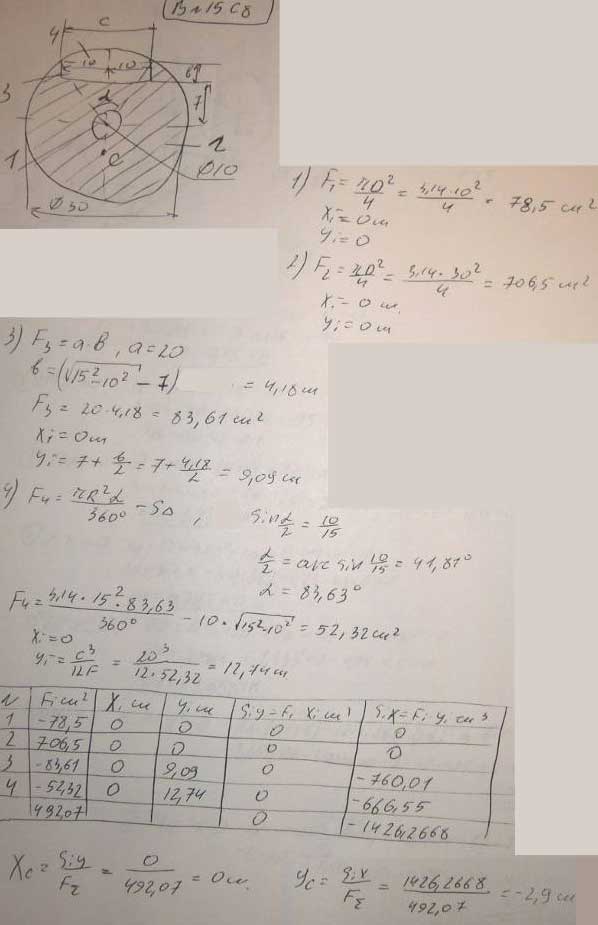 В№15 С8
c
4
10 10
3
7
α
1
2
c
Ø10
Ø30
1) F₁ = πD²/4 = 3,14·10²/4 = 78,5 см²
Xᵢ = 0 см
Yᵢ = 0
2) F₂ = πD²/4 = 3,14·30²/4 = 706,5 см²
Xᵢ = 0 см
Yᵢ = 0 см
3) F₃ = a·в, a = 20
в = (√15²-10² - 7) = 4,18 см
F₃ = 20·4,18 = 83,61 см²
Xᵢ = 0 см
Yᵢ = 7 + в/2 = 7 + 4,18/2 = 9,09 см
4) F₄ = πR²α/360° - S∆, Sin α/2 = 10/15
α/2 = arc sin 10/15 = 41,81°
α = 83,63°
F₄ = 3,14·15²·83,63/360° - 10·√15²-10² = 52,32 см²
Xᵢ = 0
Yᵢ = c³/12F = 20³/12·52,32 = 12,74 см
№ Fᵢ см² Xᵢ см Yᵢ см Sᵢy = Fᵢ Xᵢ см³ SᵢX = Fᵢ Yᵢ см³
1 -78,5 0 0 0 0
2 706,5 0 0 0 0
3 -83,61 0 9,09 0 -760,01
4 -52,32 0 12,74 0 -666,55
492,07 0 -1426,2668
Xc = Sᵢy/F_Σ = 0/492,07 = 0 см. Yc = SᵢX/F_Σ = 1426,2668/492,07 = -2,9 см